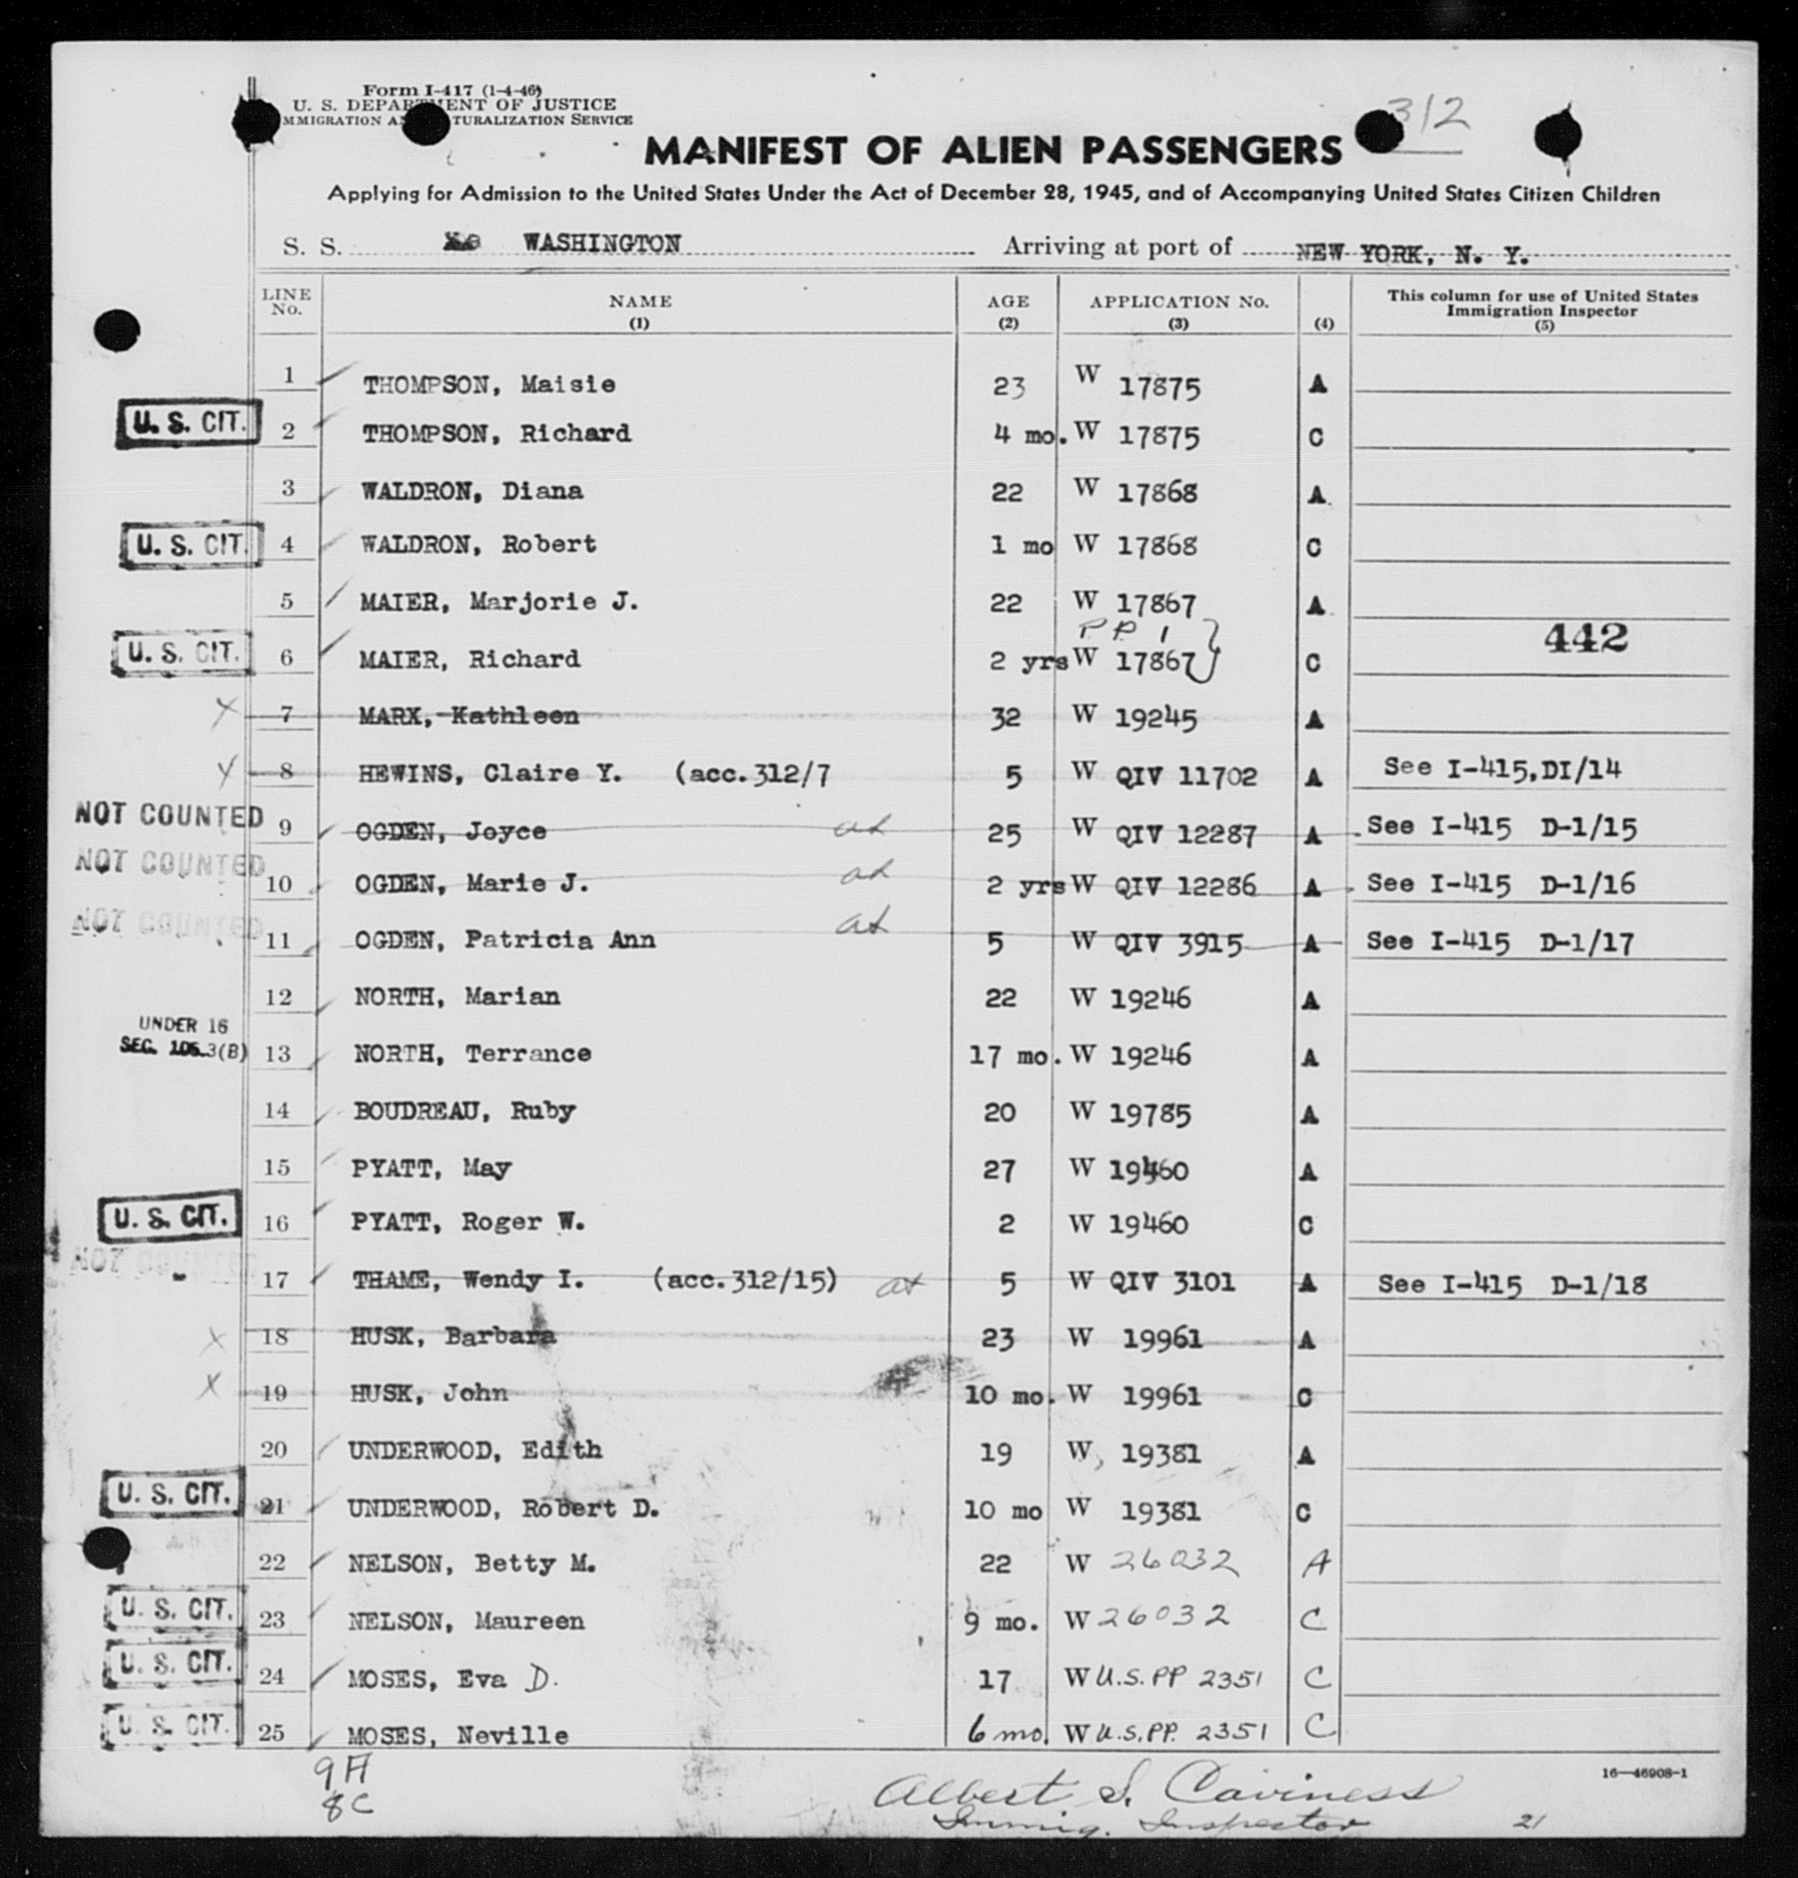 Form I-417 (1-4-46)
U. S. DEPARTMENT OF JUSTICE
IMMIGRATION AND NATURALIZATION SERVICE
312
MANIFEST OF ALIEN PASSENGERS
Applying for Admission to the United States Under the Act of December 28, 1945, and of Accompanying United States Citizen Children
S. S. WASHINGTON Arriving at port of NEW YORK, N. Y.
LINE No. NAME (1) AGE (2) APPLICATION No. (3) (4) This column for use of United States Immigration Inspector (5)
1 THOMPSON, Maisie 23 W 17875 A
U. S. CIT. 2 THOMPSON, Richard 4 mo. W 17875 C
3 WALDRON, Diana 22 W 17868 A
U. S. CIT. 4 WALDRON, Robert 1 mo W 17868 C
5 MAIER, Marjorie J. 22 W 17867 A
P.P. 1
U. S. CIT. 6 MAIER, Richard 2 yrs W 17867 C 442
X 7 MARX, Kathleen 32 W 19245 A
8 HEWINS, Claire Y. (acc.312/7 5 W QIV 11702 A See I-415,DI/14
NOT COUNTED 9 OGDEN, Joyce 25 W QIV 12287 A See I-415 D-1/15
NOT COUNTED 10 OGDEN, Marie J. 2 yrs W QIV 12286 A See I-415 D-1/16
NOT COUNTED 11 OGDEN, Patricia Ann 5 W QIV 3915 A See I-415 D-1/17
12 NORTH, Marian 22 W 19246 A
UNDER 16
SEC. 105.3(B) 13 NORTH, Terrance 17 mo. W 19246 A
14 BOUDREAU, Ruby 20 W 19785 A
15 PYATT, May 27 W 19460 A
U. S. CIT. 16 PYATT, Roger W. 2 W 19460 C
NOT COUNTED 17 THAME, Wendy I. (acc.312/15) 5 W QIV 3101 A See I-415 D-1/18
X 18 HUSK, Barbara 23 W 19961 A
X 19 HUSK, John 10 mo. W 19961 C
20 UNDERWOOD, Edith 19 W 19381 A
U. S. CIT. 21 UNDERWOOD, Robert D. 10 mo W 19381 C
22 NELSON, Betty M. 22 W 26032 A
U. S. CIT. 23 NELSON, Maureen 9 mo. W 26032 C
U. S. CIT. 24 MOSES, Eva D. 17 W U.S.PP 2351 C
U. S. CIT. 25 MOSES, Neville 6 mo. W U.S.PP. 2351 C
9A
8C
Albert S. Caviness
Immig. Inspector
16—46908-1
21